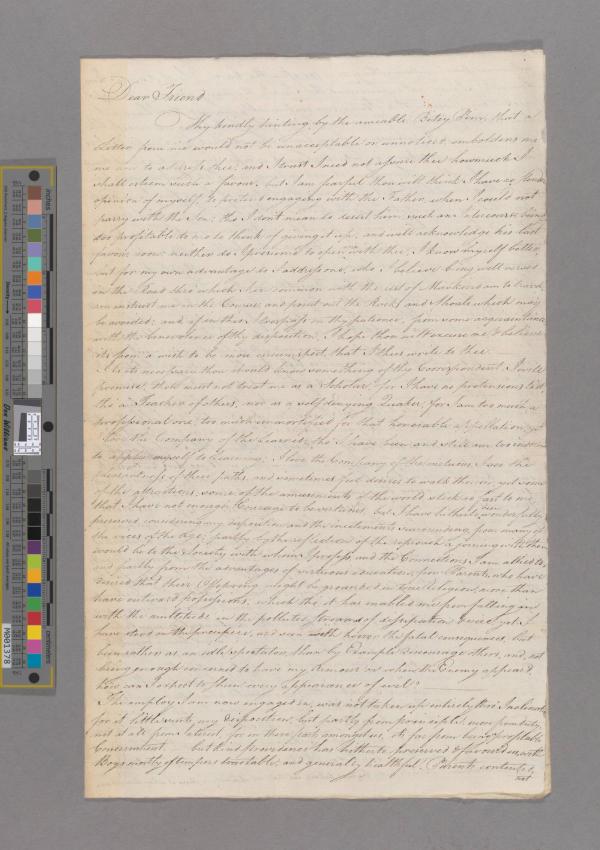 Dear Friend
Thy kindly hinting by the amiable Betsy Penn, that a
Letter from me would not be unacceptable or unnoticed, emboldens me
now to address thee, and I trust I need not assure thee how much I
shall esteem such a favour, but I am fearful thou wilt think I have so
opinion of myself to prefer engaging with the Father when I could not
parry with the Son; tho I don't mean to desert him, such an Intercourse being
too profitable to me to think of giving it up, and will acknowledge his last
favour soon. neither do I presume to open with thee, I know myself better,
but for my own advantage do I address one, who I believe being well versed
on the Road thro which I in common with the rest of Mankind am to travel,
can instruct me in the Course, and point out the Rocks and Shoals which may
be avoided; and if in this I trespass on thy patience, from some acquaintance
with the benevolence of thy disposition, I hope thou wilt excuse me & believe
its from a wish to be more circumspect that I thus write to thee
As its necessary thou should know something of thy Correspondent I will
premise, thou must not treat me as a Scholar for I have no pretensions to it
tho a Teacher of others, nor as a self denying Quaker, for I am too much a
professional one, too much unmortified for that honorable appellation, yet
I love the Company of the Learned, tho I have been and still am too
to apply myself to Learning. I love the Company of the virtuous, I see the
pleasantness of their paths, and sometimes feel desires to walk therein, yet some
of the attractions, some of the amusements of the world stick so fast to me,
that I have not enough Courage to be virtuous, but I have been hitherto wonderfully
preserved considering my disposition and the incitements surrounding, from many of
the vices of the Age; partly by the reflection of the reproach a joining with them
would be to the Society with whom I profess, and the Connections I am allied to,
and partly from the advantages of virtuous education, from Parents who have
desired that their Offspring might be grounded in true religion, more than
have outward possessions, which tho it has enabled me from falling in
with the multitude in the polluted stream of dissipation & vice; yet I
have stood on the precipice, and seen with horror the fatal consequences, but
been rather as an idle spectator, than by Example encourage others, and, not
being enough concerned to have my Armour on when the Enemy appear'd,
how can I expect to shun every appearance of evil?
The employ I am now engaged in, was not taken up entirely thro Inclination,
for it little suits my disposition, but partly from principle, more
not at all from Interest, for in these parts amongst us, its far from being profitable
Concernment. but kind providence has hitherto preserved & favoured me with
Boys mostly of tempers tractable, and generally healthful; Parents contented,
not